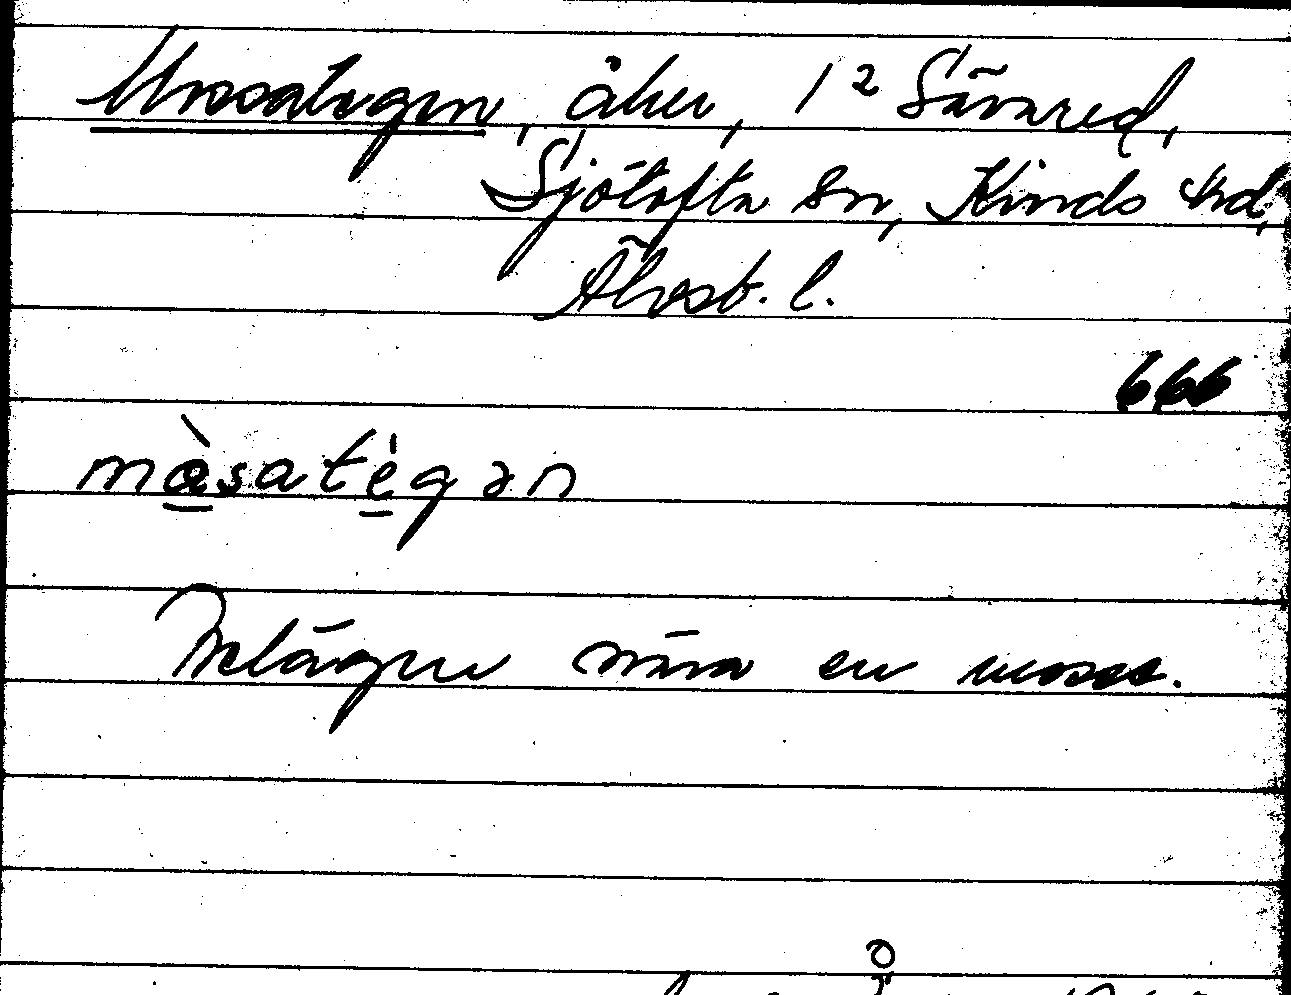 Mosategen, åker, 1² Sävared,
Sjötofta sn, Kinds hd,
Älvsb. l.
666
mòsatégən
Belägen nära en mosse.